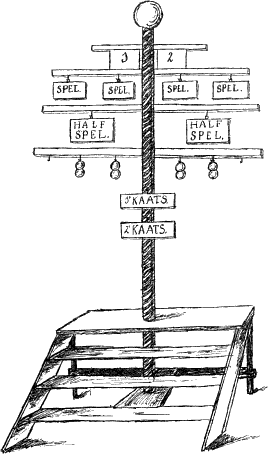 3 2
SPEL. SPEL. SPEL. SPEL.
HALF HALF
SPEL. SPEL.
KAATS.
KAATS.